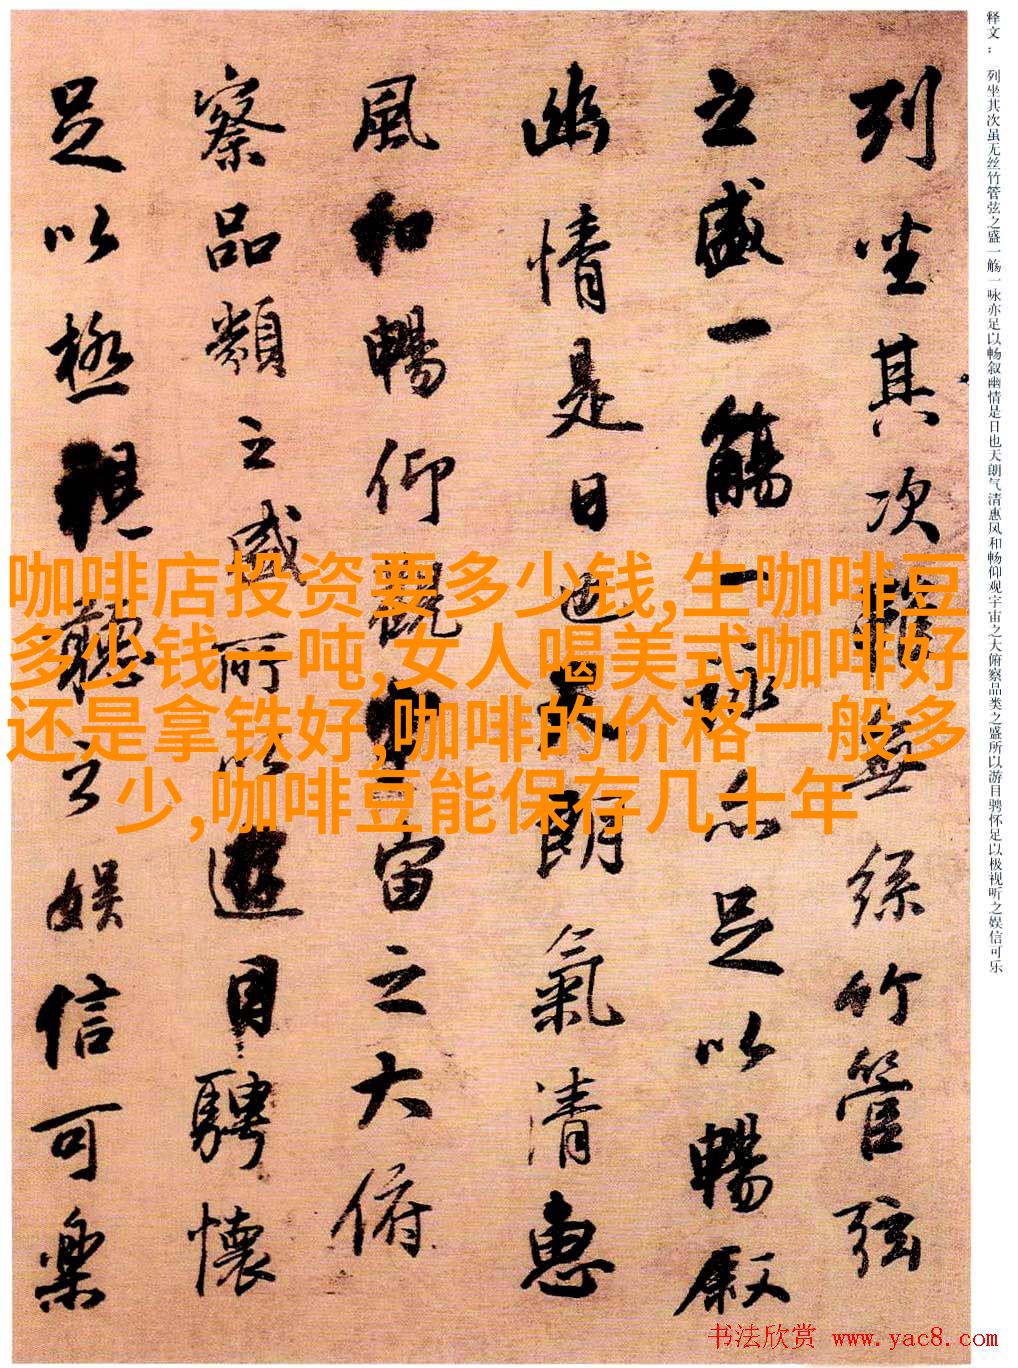 释文： 列坐其次虽无丝竹管弦之盛一觞一咏亦足以畅叙幽情是日也天朗气清惠风和畅仰观宇宙之大俯察品类之盛所以游目骋怀足以极视听之娱信可乐
列坐其次雖無絲竹管弦
之盛一觴一詠亦足以暢敘
幽情是日也天朗氣清惠
風和暢仰觀宇宙之大俯
察品類之盛所以遊目騁懷
足以極視聽之娛信可樂
咖啡店投资要多少钱,生咖啡豆
多少钱一吨,女人喝美式咖啡好
还是拿铁好,咖啡的价格一般多
少,咖啡豆能保存几十年
书法欣赏 www.yac8.com